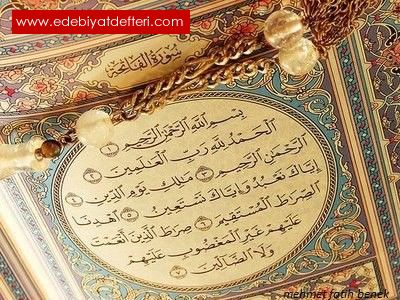 www.edebiyatdefteri.com
سورة الفاتحة
بسم الله الرحمن الرحيم ١
الحمد لله رب العالمين ٢
الرحمن الرحيم ٣ ملك يوم الدين ٤
إياك نعبد وإياك نستعين ٥ اهدنا
الصراط المستقيم ٦ صراط الذين أنعمت
عليهم غير المغضوب عليهم
ولا الضالين ٧
mehmet fatih benek